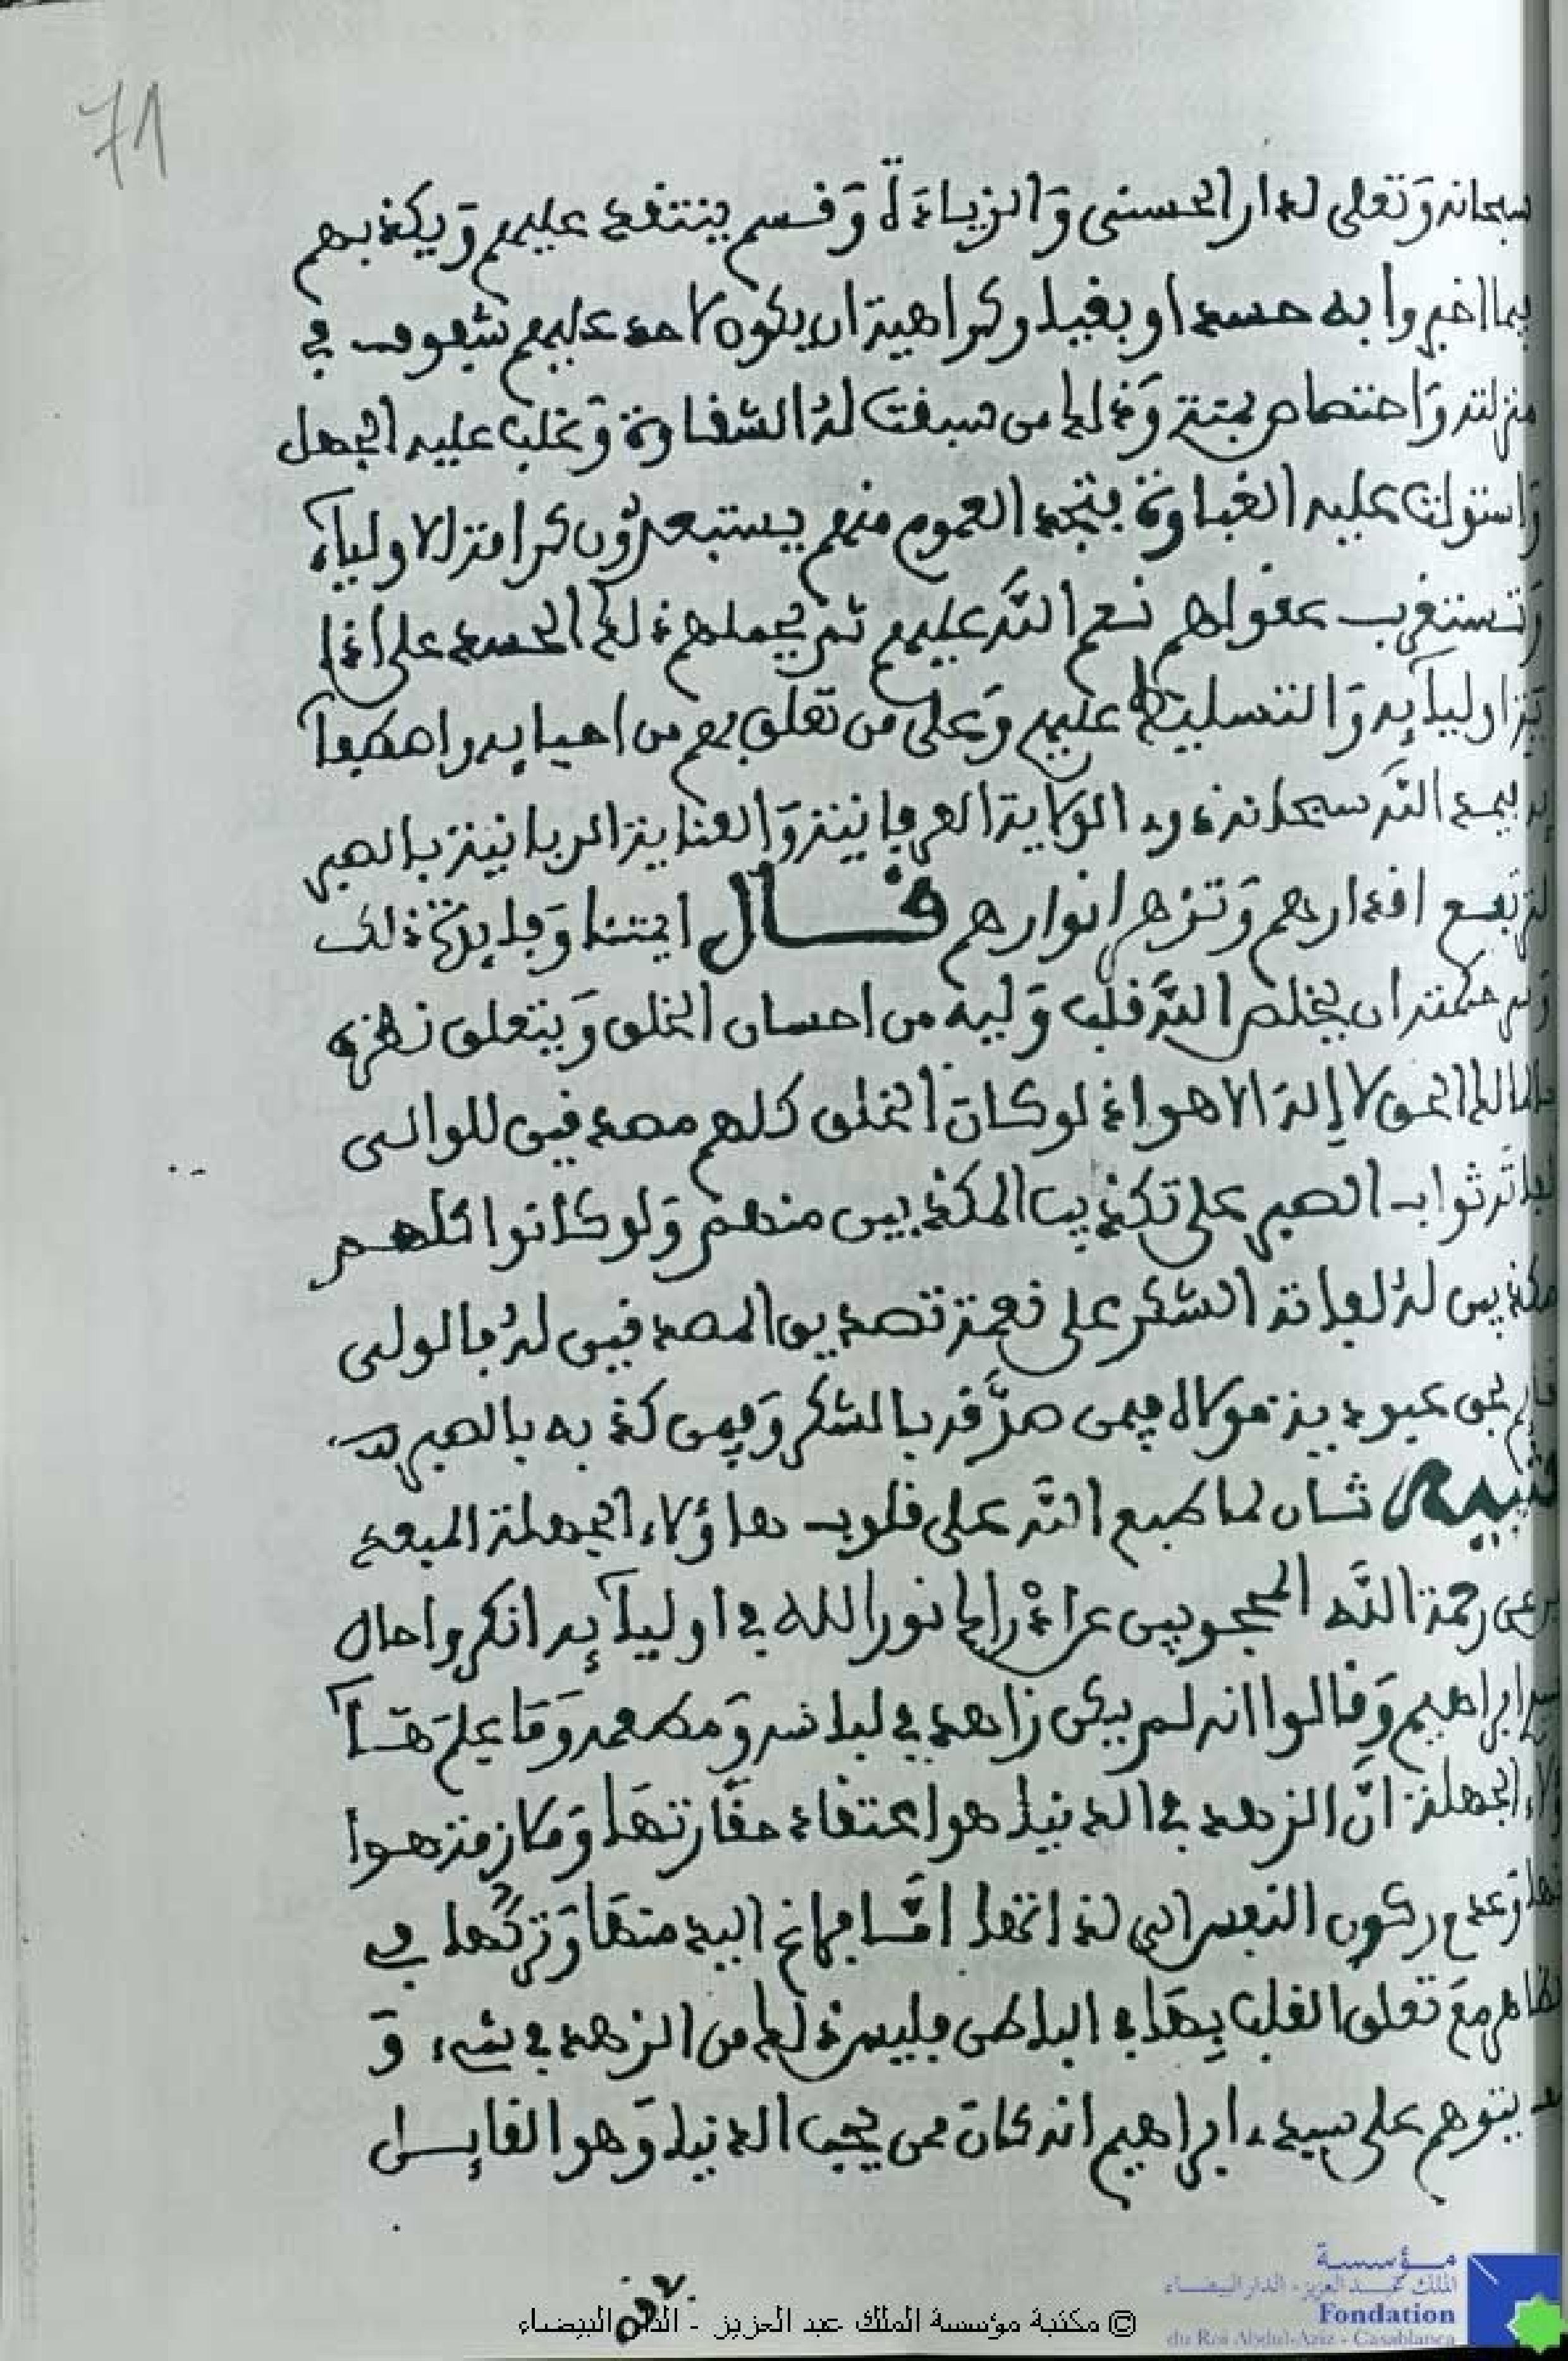 71
سبحانه وَتعلى لدار الحسنى وَالزيادَة وَقسم ينتقد عليهم وَيكذبهم
بما اخبروا به حسدا وبغيا وكراهية ان يكون لاحد عليهم شفوف في
منزلته وَاختصاص بمنة وَذلك من سبقت لهُ الشقاوة وَغلب عليه الجهل
وَاستولت عليه الغباوة فتجد العموم منهم يستبعدون كرامة الاولياء
وَتستغرب عقولهم نعم اللَّه عليهم ثم يحملهم ذلك الحسد على اذا
ية اوليآيه وَالتسليط عليهم وَعلى من تعلق بهم من احبابه واصطفا
به يمد اللَّه سبحانه ذوى الولاية العرفانية وَالعناية الربانية بالصبر
لترتفع اقدارهم وَتزهر انوارهم قال ايمتنا وَفايدة ذلك
وسر حكمته ان يخلص اللَّه قلب وَليه من احسان الخلق وَيتعلق نظره
بالمالك الحق لا إله الا هو اذ لو كانَ الخلق كلهم مصدقين للوالى
لفاته ثواب الصبر على تكذيب المكذبين منهم وَلو كانوا كلهم
مكذبين لهُ لفاته الشكر على نعمة تصديق المصدقين لهُ فالولى
عبودية مولاه فيمن صدَّقه بالشكر وَفيمن كذبه بالصبر
تنبيه ثان لما طبع اللَّه على قلوب هاؤلاء الجهلة المبعد
ين عن رحمة اللَّه المحجوبين عن ادْراك نور الله في اوليآيه انكروا حال
ابراهيم وَقالوا انه لم يكن زاهدا في لباسه وَمطعمه وَمَا علمَ هـَـا
ولاء الجهلة انَّ الزهد في الدنيا هو اعتقاد حقارتها وَمكانة هوا
نها وَعدم ركون النفس الى لذاتها امَّا فراغ اليد منهَا وَتركُها في
الظاهر معَ تعلق القلب بهَا في الباطن فليس ذلك من الزهد في شيء وَ
قد يتوهم على سيدى ابراهيم انه كانَ ممن يحب الدنيا وَهو القايل
© مكتبة مؤسسة الملك عبد العزيز - الدار البيضاء
مؤسسة
الملك عبد العزيز - الدار البيضاء
Fondation
du Roi Abdul-Aziz - Casablanca